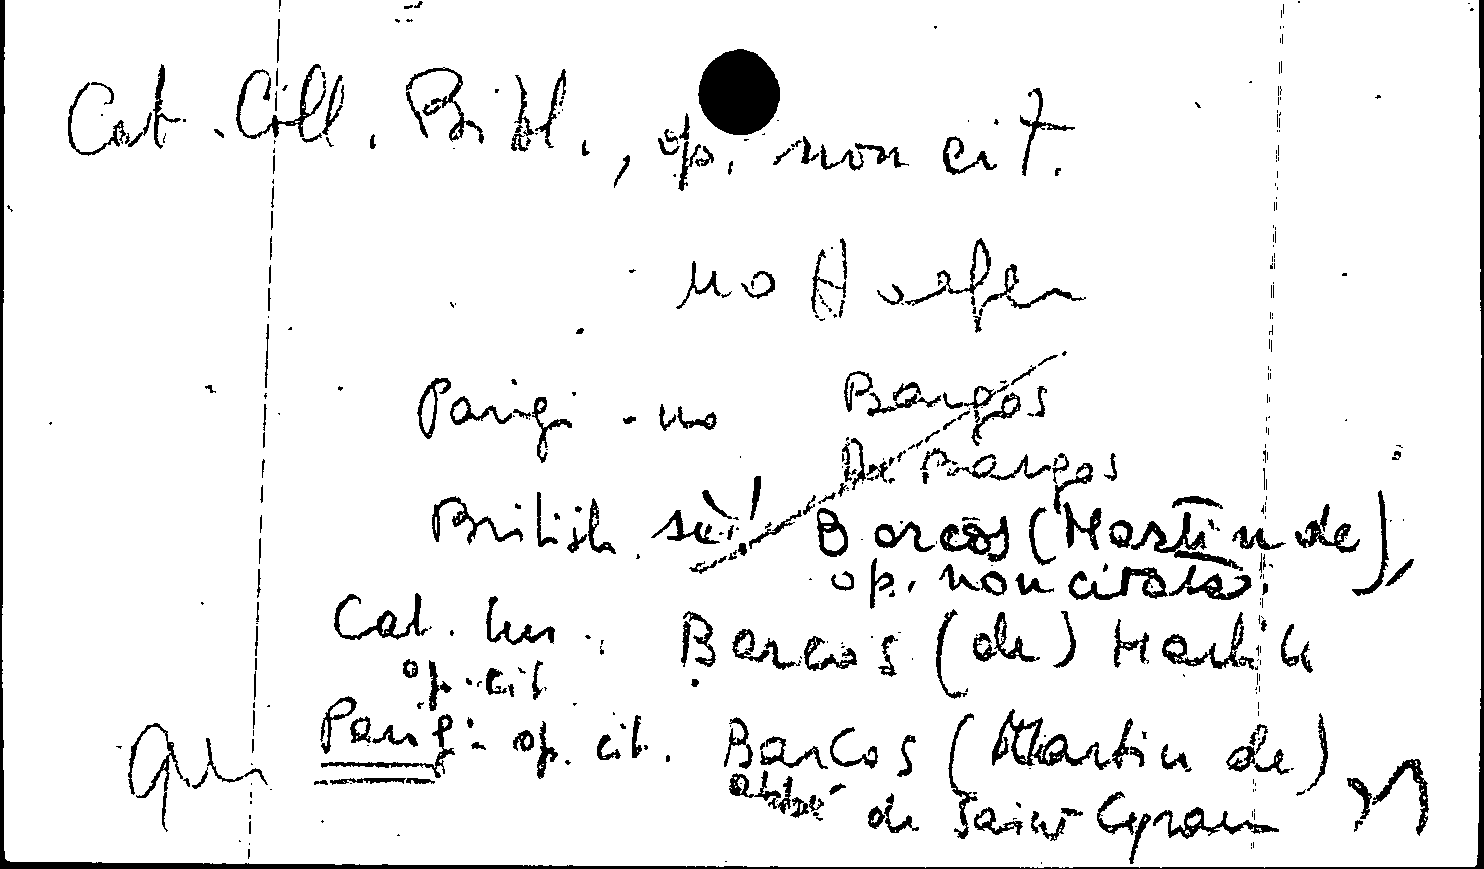 Cat. Coll. Bibl., op. non cit.
no Hoefer
Parigi - no Bargos
De Bargos
British. sì! Barcos (Martin de),
op. non citata.
Cat. : Barcos (de) Martin
op. cit
Parigi - op. cit. Barcos (Martin de)
abbé de Saint Cyran